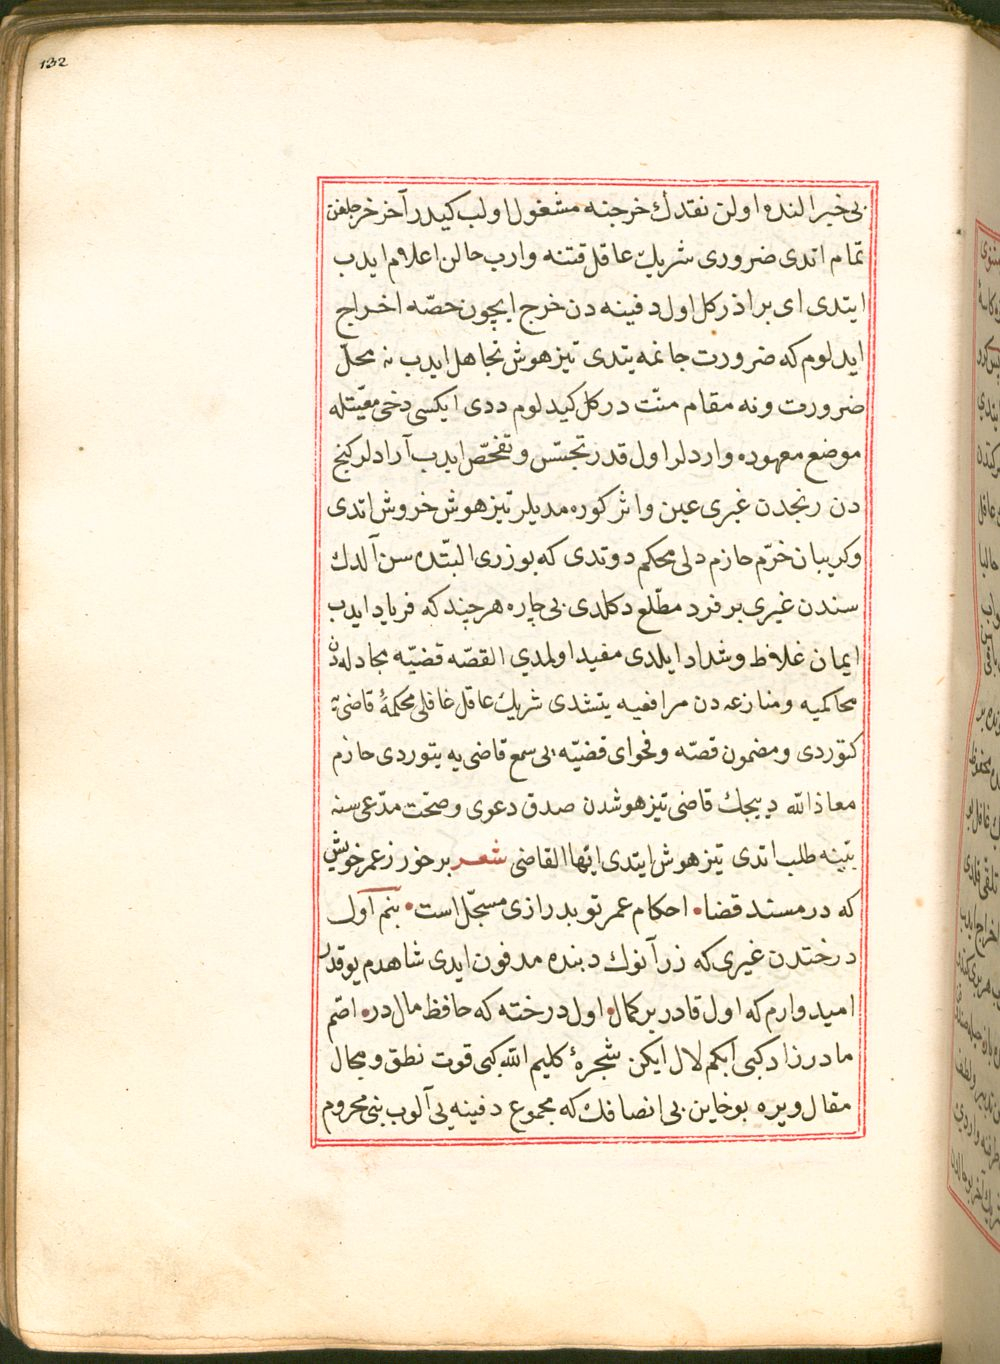 132
بی خبر النده اولن نقدك خرجنه مشغول اولب كیدر آخر خرجلغن
تمام اتدی ضروری شریك عاقل قتنه وارب حالن اعلام ایدب
ایتدی ای برادر كل اول دفینه دن خرج ایچون حصّه اخراج
ایدلوم كه ضرورت جانمه یتدی تیزهوش تجاهل ایدب نه محلّ
ضرورت ونه مقام منّت در كل كیدلوم ددی ایكسی دخی معیّتله
موضع معهوده واردلر اول قدر تجسّس و تفحّص ایدب آرادلر كنج
دن رنجدن غیری عین واثر كوره مدیلر تیزهوش خروش اتدی
وكریبان خرّم حازم دلی محكم دوتدی كه بو زری البتّده سن آلدك
سندن غیری بر فرد مطّلع دكلدی بی چاره هر چند كه فریاد ایدب
ایمان غلاظ و شداد ایلدی مفید اولمدی القصّه قضیّه مجادله دن
محاكمیه ومنازعه دن مرافعیه یتشدی شریك عاقل غافلی محكمهٔ قاضی یه
كتوردی ومضمون قصّه وفحوای قضیّه یی سمع قاضی یه یتوردی حازم
معاذ الله دییجك قاضی تیزهوشدن صدق دعوی وصحّت مدّعی سنه
بیّنه طلب اتدی تیزهوش ایتدی ایّها القاضی شعر بر خور ز عمر خویش
كه در مسند قضا • احكام عمر تو بدرازی مسجّل است • بنم اول
درختدن غیری كه زر آنوك دبنده مدفون ایدی شاهدم یوقدر
امیدوارم كه اول قادر بر كمال • اول درخته كه حافظ مال در • اصّم
مادرزاد كبی ابكم لال ایكن شجرهٔ كلیم الله كبی قوت نطق و مجال
مقال ویره بو خاین بی انصافك كه مجموع دفینه یی آلوب بنی محروم